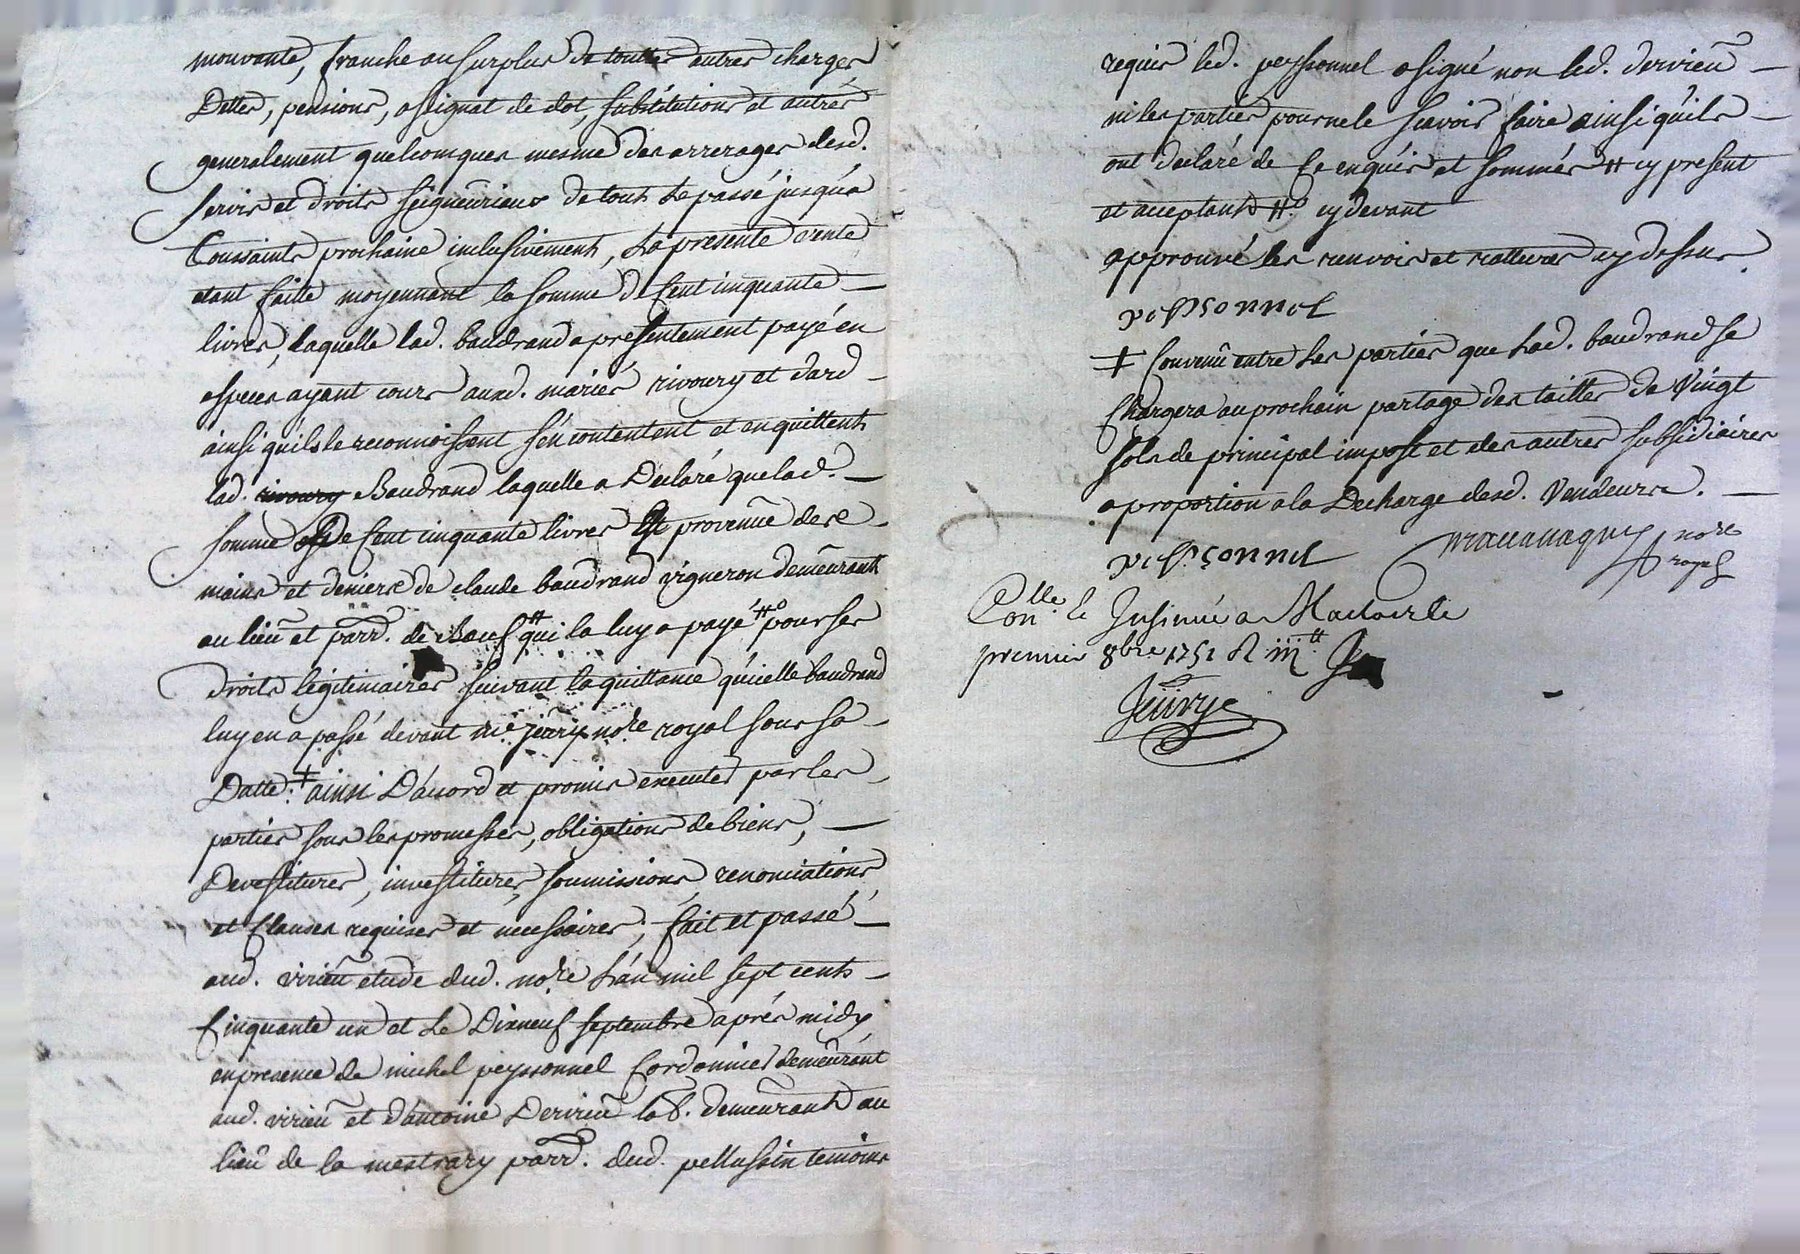 mouvante, franche au surplus de touttes autres charges
Dettes, pensions, assignat de dot, substitutions et autres
generalement quelcomques mesme des arrerages desd.
servis et droits seigneuriaux de tout le passé jusqu'a
Toussaints prochaine inclusivement, La presente vente
etant faitte moyennant la somme de Cent cinquante
livres, laquelle lad. baudrand a presentement payé en
espèces ayant cours auxd. mariés rivoury et dard
ainsi quils le reconnoissent s'en contentent et en quittent
lad. rivoury Baudrand laquelle a Declaré que lad.
somme de Cent cinquante livres Est provenüe des
mains et deniers de claude baudrand vigneron demeurant
au lieu et parr. de Bœuf # qui la luy a payé #° pour ses
Droits legitimaires suivant la quittance qu'icelle baudrand
luy en a passé devant me jeury nore royal sous sa
Datte: ‡ ainsi D'accord et promis executer par les
parties sous les promesses, obligations de biens,
Devestitures, investitures, soumissions, renonciations
et Clauses requises et necessaires; fait et passé
aud. virieu etude dud. nore L'an mil sept cents
Cinquante un et Le Dixneuf septembre après midy
en presence de michel peyssonnel Cordonnier demeurant
aud. virieu et d'antoine Dervieu lab. demeurant au
lieu de la mestrary parr. dud. pellussin temoins
requis led. peyssonnel a signé non led. dervieu
ni les parties pour ne le sçavoir faire ainsi qu'ils
ont declaré de Ce enquis et sommés # cy present
et acceptant #° cy devant
approuvé les renvois et rattures cy dessus
peyssonnel
‡ Convenu entre Les parties que Lad. baudrand se
Chargera au prochain partage des tailles de Vingt
sols de principal impost et des autres subsidiaires
a proportion a la Decharge desd. Vendeurs.
peyssonnel
nore
royal
Conlle et Insinué a Maclas le
premier 8bre 1751 R iii#
Jeurye